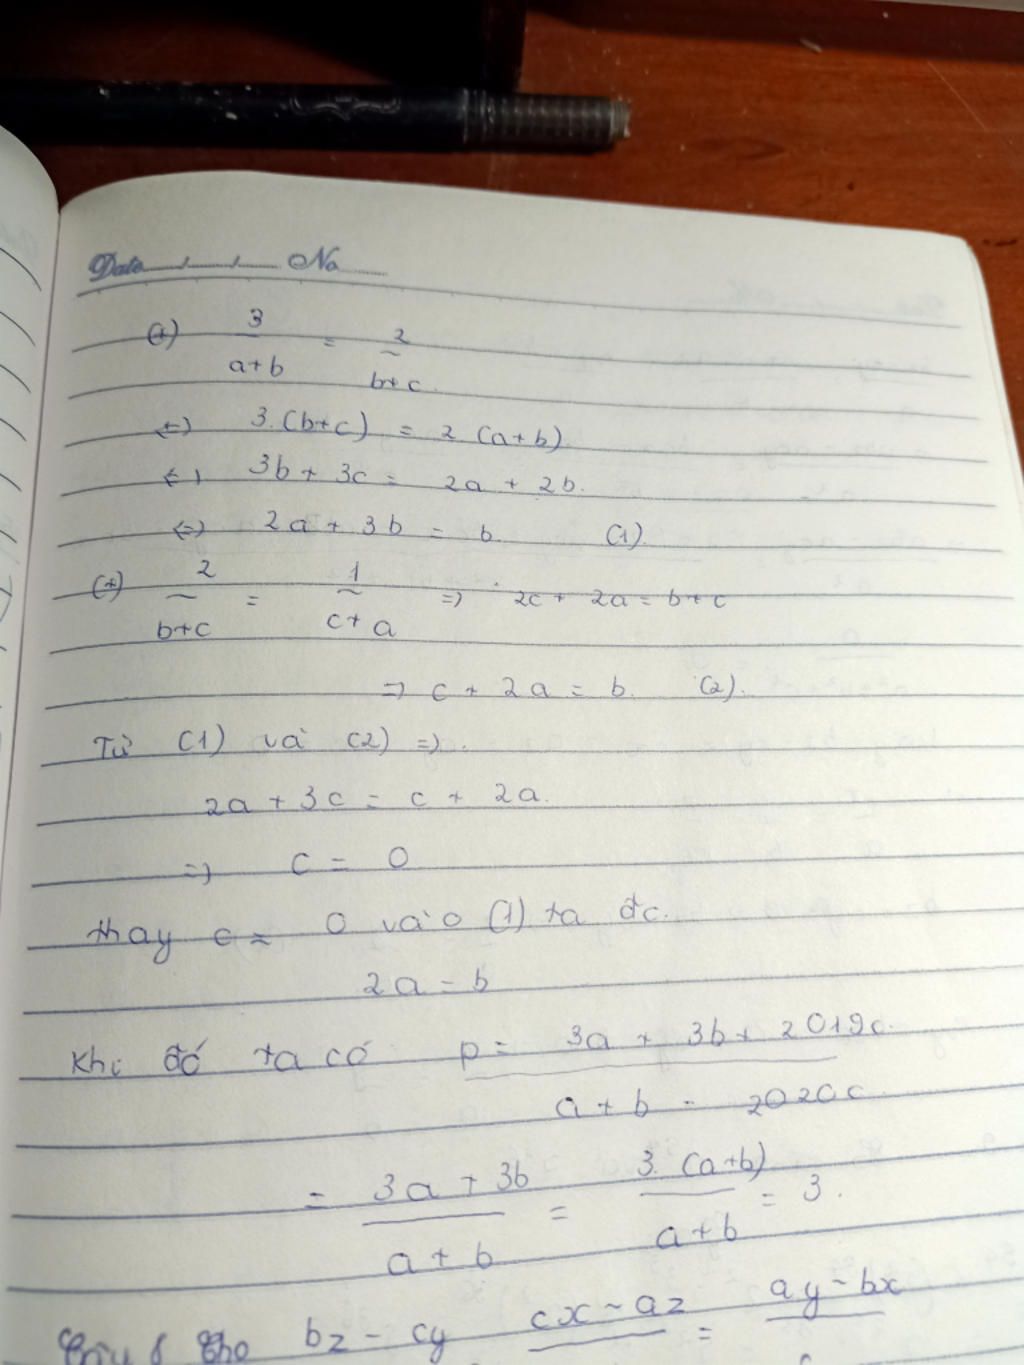 Date No
(+) 3/a+b = 2/b+c
<=> 3.(b+c) = 2 (a+b)
<=> 3b + 3c = 2a + 2b.
<=> 2a + 3b = b (1)
(+) 2/b+c = 1/c+a => 2c + 2a = b+c
=> c + 2a = b. (2).
Từ (1) và (2) =>.
2a + 3c = c + 2a.
=> c = 0
thay c = 0 vào (1) ta đc.
2a = b
Khi đó ta có p = 3a + 3b + 2019c / a + b - 2020c
= 3a + 3b / a + b = 3.(a+b) / a+b = 3.
Cho bz - cy cx - az = ay - bx